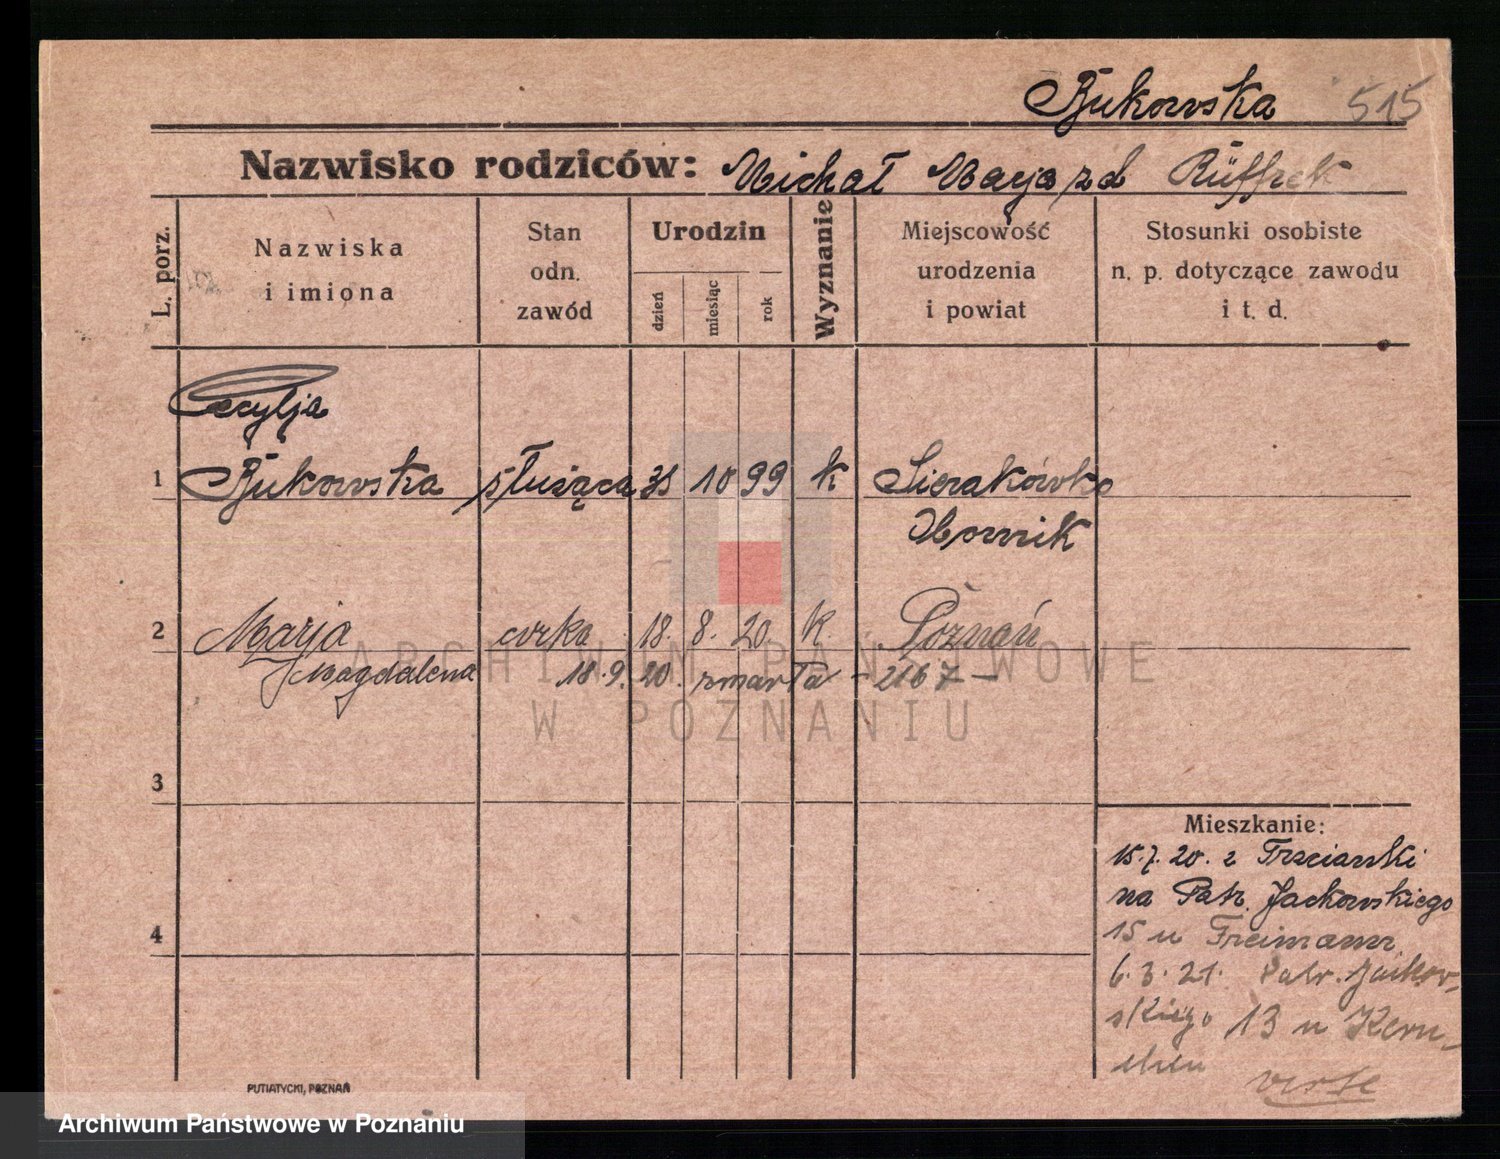 Bukowska 515
Nazwisko rodziców: Michał Marja zd
L. porz.
Nazwiska
i imiona
Stan
odn.
zawód
Urodzin
dzień
miesiąc
rok
Wyznanie
Miejscowość
urodzenia
i powiat
Stosunki osobiste
n. p. dotyczące zawodu
i t. d.
Cecylja
1 Bukowska służąca 31 10 99 k Sierakówko
Obornik
2 Marja córka 18. 8. 20. k. Poznań
Magdalena 18.9.20. zmarła - 2167 -
3
4
Mieszkanie:
15.7.20. z Trzcianki
na Patr. Jackowskiego
15 u Freimann
6.3.21. Patr. Jackow-
skiego 13 u
verte
PUTIATYCKI, POZNAŃ
ARCHIWUM PAŃSTWOWE
W POZNANIU
Archiwum Państwowe w Poznaniu